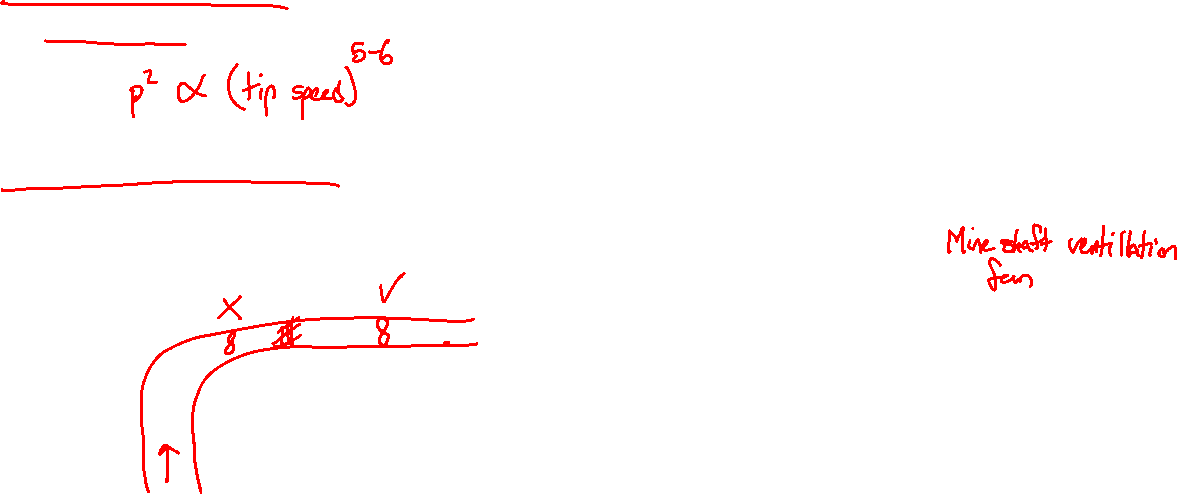 p² ∝ (tip speed)⁵⁻⁶
Mine shaft ventillation
fan
X
✓
8
8